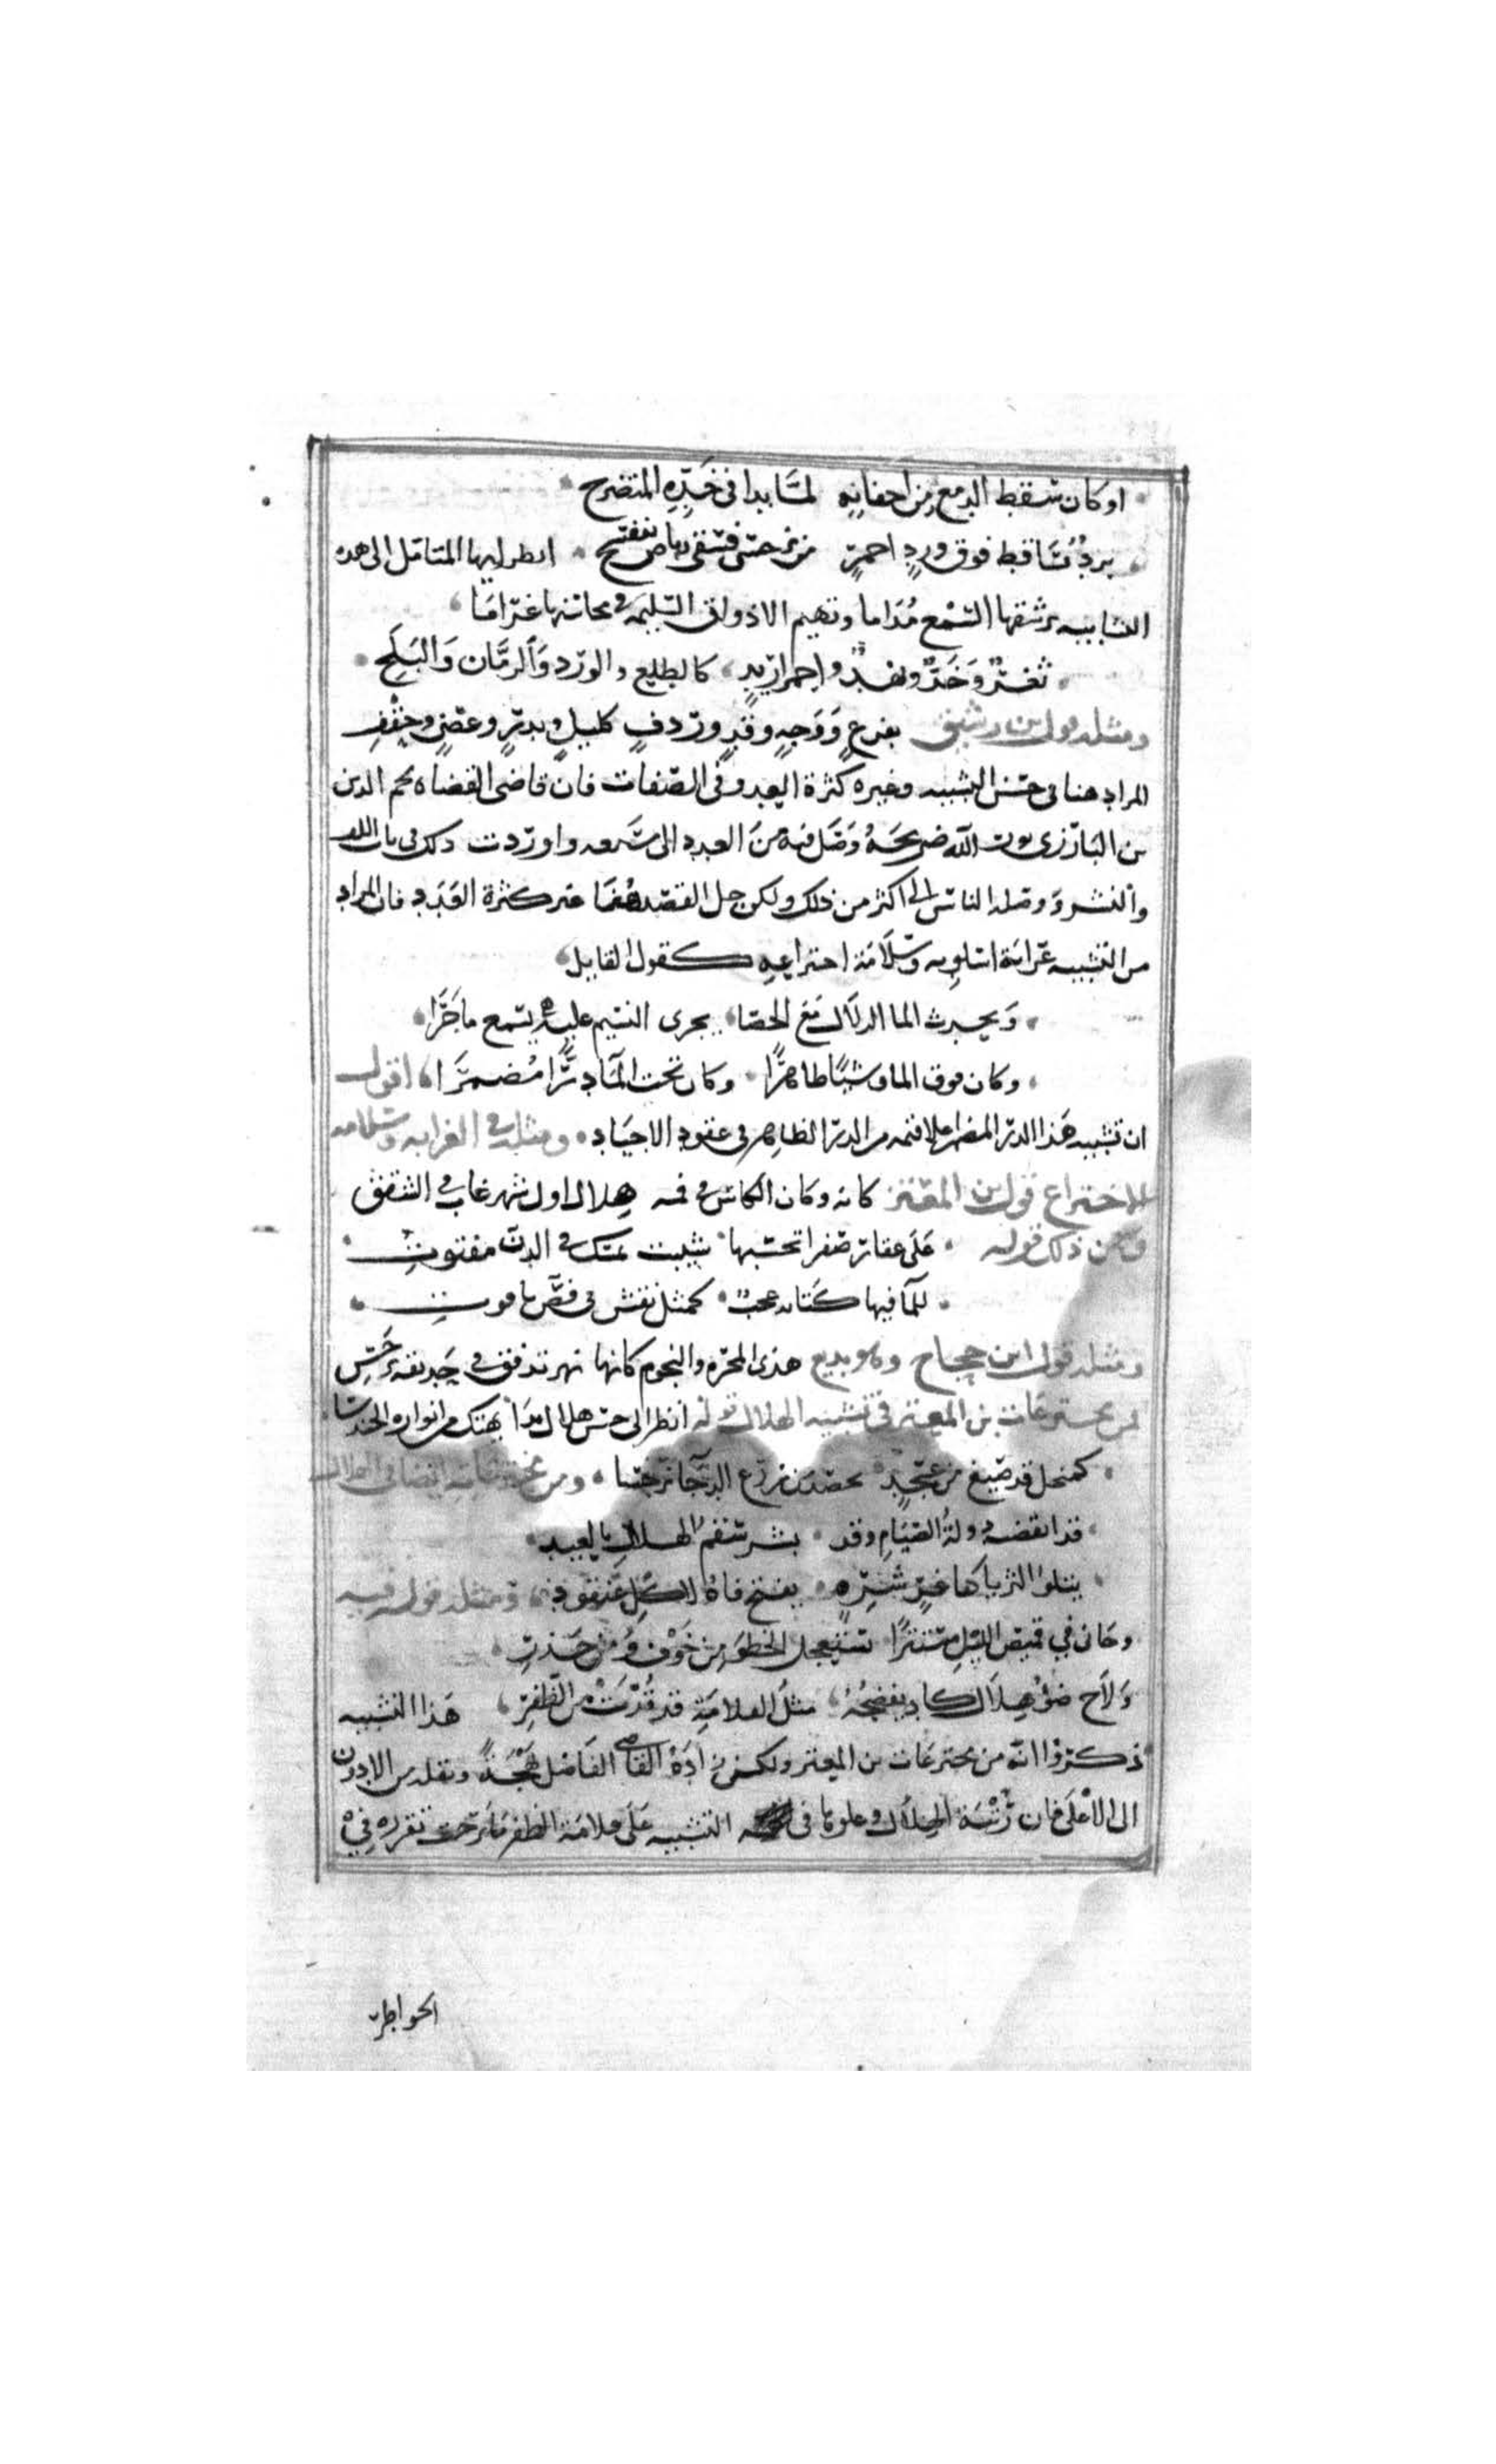 او كان سقط الدمع من اجفانه لما بدا في خده المتضرج
برد تساقط فوق ورد احمر من نرجس فسقى رياض بنفسج انظر ايها المتامل الى هذه
التشابيه يرشفها السمع مداما وتهيم الاذواق السليمه في محاسنها غراما
ثغر وخد ونهد واحمرار يد كالطلع والورد والرمان والبلح
ومثله قول ابن رشيق بفرع ووجه وقد وردف كليل وبدر وغصن وحقف
المراد هنا في حسن التشبيه وغيره كثرة العدد وفي الصفات فان قاضي القضاه نجم الدين
بن البارزي نور الله ضريحه وصل فيه من العدد الى سبعه واوردت ذلك في باب اللف
والنشر ووصله الناس الى اكثر من ذلك ولكن جل القصد هنا غير كثرة العدد فان المراد
من التشبيه غرابة اسلوبه وسلامة اختراعه كقول القايل
وتحدث الما الزلال مع الحصا فجرى النسيم عليه يسمع ما جرا
وكان فوق الما وشيا ظاهرا وكان تحت الما درا مضمرا اقول
ان تشبيه هذا الدر المضمر اعلا قيمه من الدر الظاهر في عقود الاجياد ومثله في الغرابه وسلامه
الاختراع قول ابن المعتز كانه وكان الكاس في فمه هلال اول شهر غاب في الشفق
ومن ذلك قوله على عقار صفرا تحسبها شيبت بمسك في الدن مفتوت
للما فيها كتابه عجب كمثل نقش في فص ياقوت
ومثله قول ابن حجاج وهو بديع هذى المجره والنجوم كانها نهر تدفق في حديقه نرجس
من مخترعات بن المعتز في تشبيه الهلال قوله انظر الى حسن هلال بدا يهتك من انواره الحندسا
كمنجل قد صيغ من عسجد يحصد من زرع الدجا نرجسا ومن مخترعاته ايضا في الهلال
قد انقضت دولة الصيام وقد بشر سقم الهلال بالعيد
يتلوا الثريا كفاغر شره يفتح فاه لاكل عنقود ومثله قوله فيه
وجاني في قميص الليل مستترا يستعجل الخطو من خوف ومن حذر
ولاح ضؤ هلال كاد يفضحه مثل القلامة قد قدت من الظفر هذا التشبيه
ذكروا انه من مخترعات بن المعتز ولكن زاده القاضي الفاضل بهجة ونقله من الادون
الى الاعلى فان رتبة الهلال وعلوها في التشبيه على قلامة الظفر ما برحت تقرره في
الخواطر